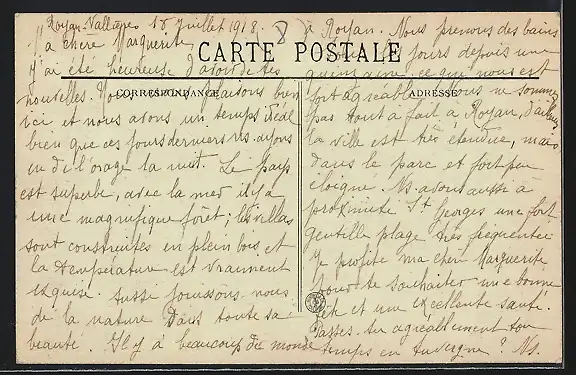 Royan-Vallières 15 Juillet 1918.
Ma chère Marguerite,
J'ai été heureuse d'avoir de tes
nouvelles. Nous plaisons bien
ici et nous avons un temps idéal
bien que ces jours derniers ns. ayons
eu de l'orage la nuit. Le pays
est superbe, avec la mer il y a
une magnifique fôret; les villas
sont construites en plein bois et
la température est vraiment
exquise. Aussi jouissons-nous
de la nature dans toute sa
beauté. Il y a beaucoup de monde
CARTE POSTALE
CORRESPONDANCE
ADRESSE
à Royan. Nous prenons des bains
tous les jours depuis une
quinzaine ce qui nous est
fort agréable. Nous ne sommes
pas tout à fait à Royan, d'ailleurs
la ville est très étendue, mais
dans le parc et fort peu
éloigné. Ns. avons aussi à
proximité St Georges une fort
gentille plage très fréquentée
Je profite ma chère Marguerite
pour te souhaiter une bonne
fête et une excellente santé.
Passes-tu agréablement ton
temps en Auvergne? Ns.